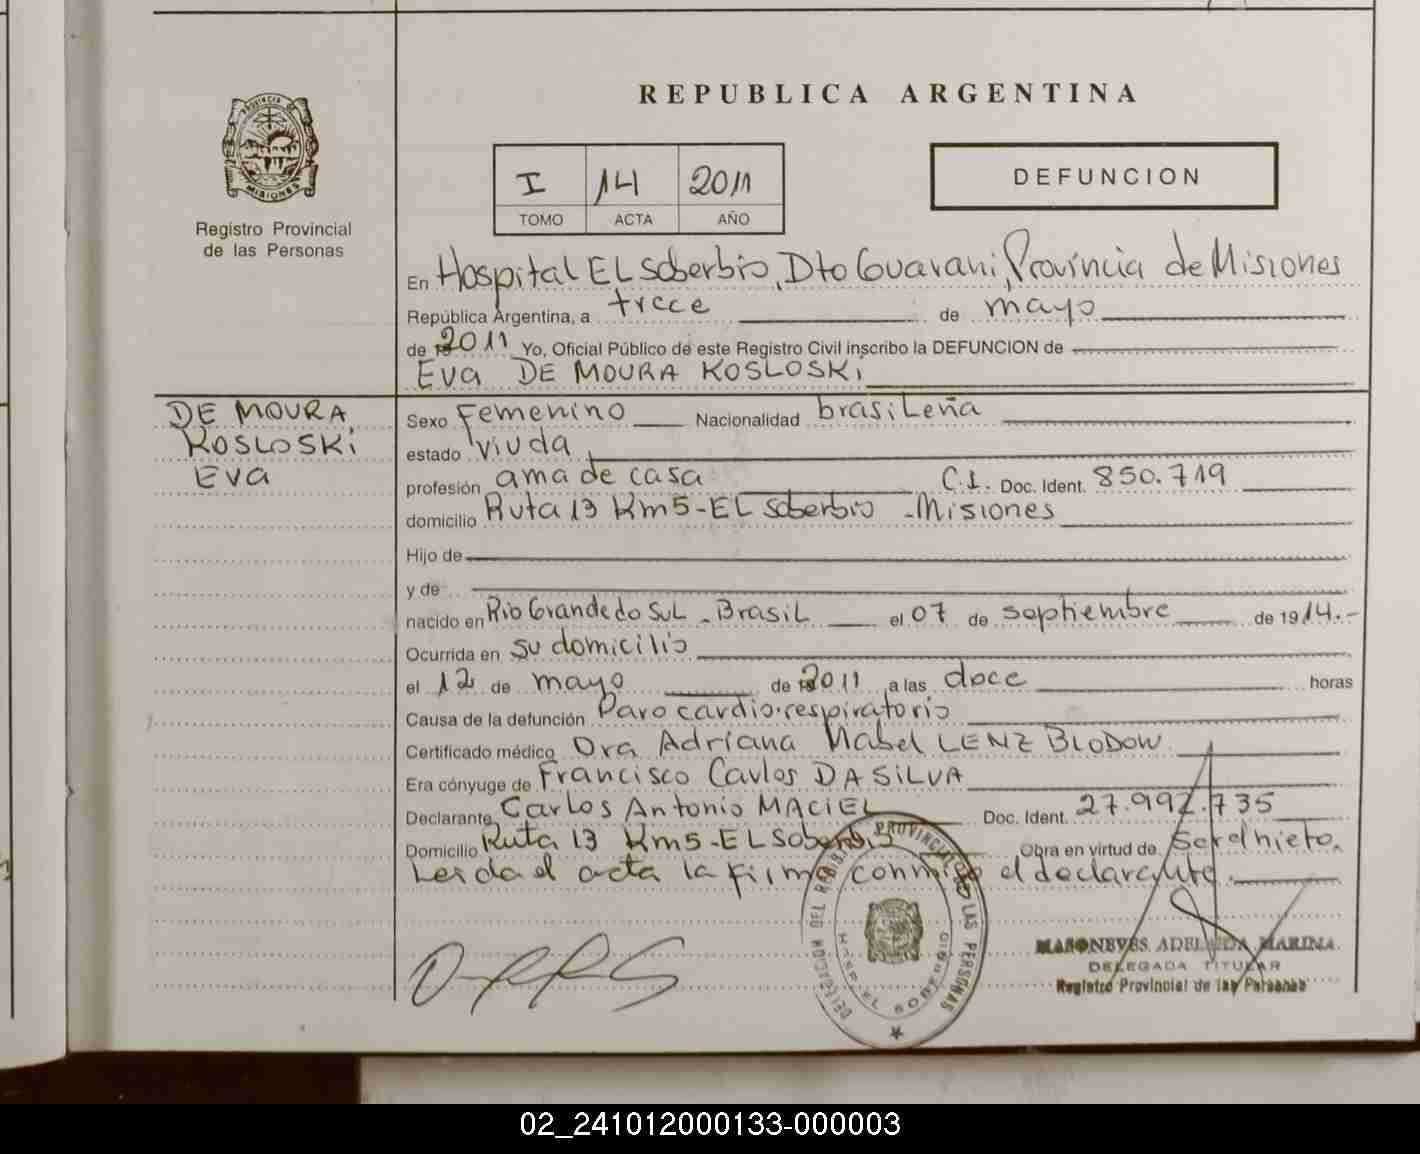 REPUBLICA ARGENTINA
PROVINCIA DE
MISIONES
Registro Provincial
de las Personas
I 14 2011
TOMO ACTA AÑO
DEFUNCION
En Hospital EL Soberbio, Dto Guarani, Provincia de Misiones
República Argentina, a trece de mayo
de 2011 Yo, Oficial Público de este Registro Civil inscribo la DEFUNCION de
Eva DE MOURA KOSLOSKi
DE MOURA
KOSLOSKi
Eva
Sexo Femenino Nacionalidad brasiLeña
estado viuda
profesión ama de casa C.I. Doc. Ident. 850.719
domicilio Ruta 13 Km5-EL Soberbio - Misiones
Hijo de
y de
nacido en Rio Grande do SuL - BrasiL el 07 de septiembre de 1914.-
Ocurrida en su domicilio
el 12 de mayo de 2011 a las doce horas
Causa de la defunción Paro cardio-respiratorio
Certificado médico Dra Adriana Mabel LENZ BLODOW
Era cónyuge de Francisco Carlos DA SILVA
Declarante Carlos Antonio MACIEL Doc. Ident. 27.992.735
Domicilio Ruta 13 Km5-EL Soberbio Obra en virtud de Ser el nieto.
Leida el acta la firma conmigo el declarante.
DELEGACION DEL REGIST. PROVINCIAL DE LAS PERSONAS
HOSP. EL SOBERBIO
MASONEVES ADELAIDA MARINA
DELEGADA TITULAR
Registro Provincial de las Personas
02_241012000133-000003